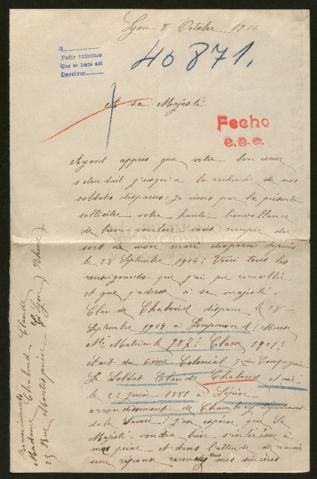 Lyon 8 Octobre 1916
Pedir informes
Que se hace así
Devolver
40871.
A sa Majesté
Fecho
Ayant appris que votre bon cœur
s'étendait jusqu'à la recherche de nos
soldats disparus: Je viens par la présente
solliciter votre haute bienveillance
de bien vouloir vous occuper du
sort de mon mari disparu depuis
le 28 Septembre 1914: Voici tous les
renseignements que j'ai pu recueillir
et que j'adresse à sa majesté.
Claude Chaboud disparu le 28
Septembre 1914 à
Nº Matricule 982: Classe 1901:
était du 6eme Colonial Compagnie
Le Soldat Claude Chaboud est né
le 22 juin 1881 à
arrondissement de Chambéry département
de la Savoie: J'ose espérer que Sa
Majesté voudra bien s'intéresser à
ma peine et dans l'attente de recevoir
une réponse recevez mes sincères
Remerciements
Madame Chaboud Claude
29 Rue Montesquieu Lyon Rhône